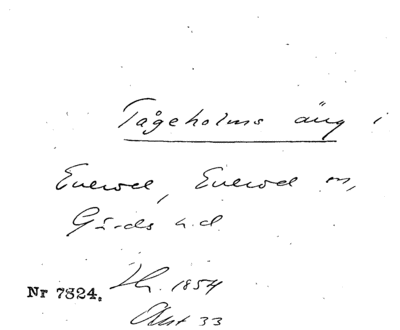 Tågeholms äng i
Everöd, Everöd sn,
Gärds h.d.
Nr 7824. 1854
Akt 33